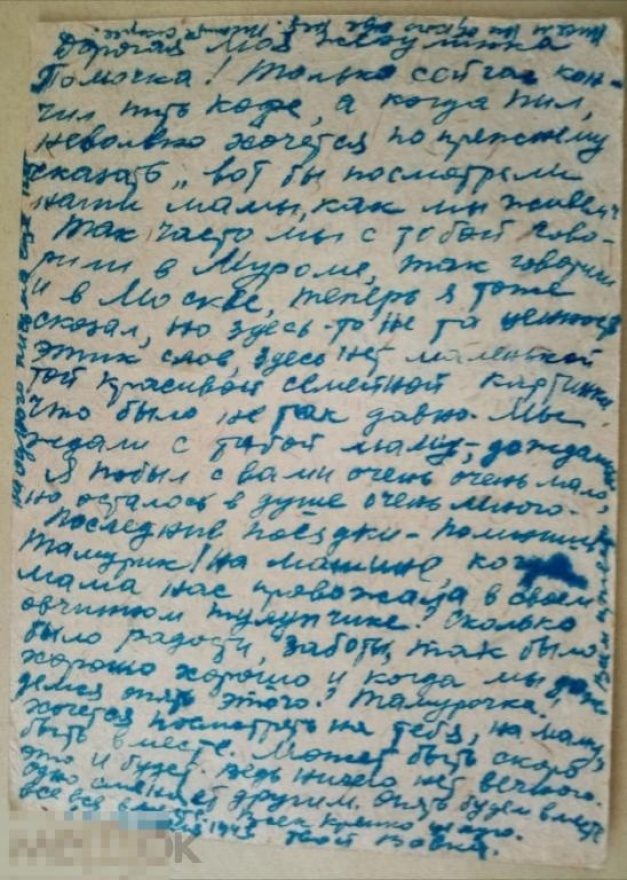 Дорогая моя
Томочка! Только сейчас кон-
чил пить кофе, а когда пил,
невольно хочется по прежнему
сказать „вот бы посмотрели
наши мамы, как мы живем"
Так часто мы с тобой гово-
рили в Муроме, так говорили
и в Москве, теперь я тоже
сказал, но здесь-то не та ценность
этих слов, здесь нет маленькой
той красивой семейной картинки
что было не так давно. Мы
ждали с тобой маму,
Я побыл с вами очень очень мало,
но осталось в душе очень много.
Последние поездки - помнишь
Тамурик! На машине, когда
мама нас провожала в своем
овчинном тулупчике! Сколько
было радости, заботы, так было
хорошо хорошо и когда мы дож-
демся опять этого! Тамурочка!
хочется посмотреть на тебя, на маму,
быть вместе. Может быть скоро
это и будет. Ведь ничего нет вечного.
одно сменяет другим. Опять будем вместе
все все вместе. Всех крепко целую.
1943 твой Вовка.
мешок